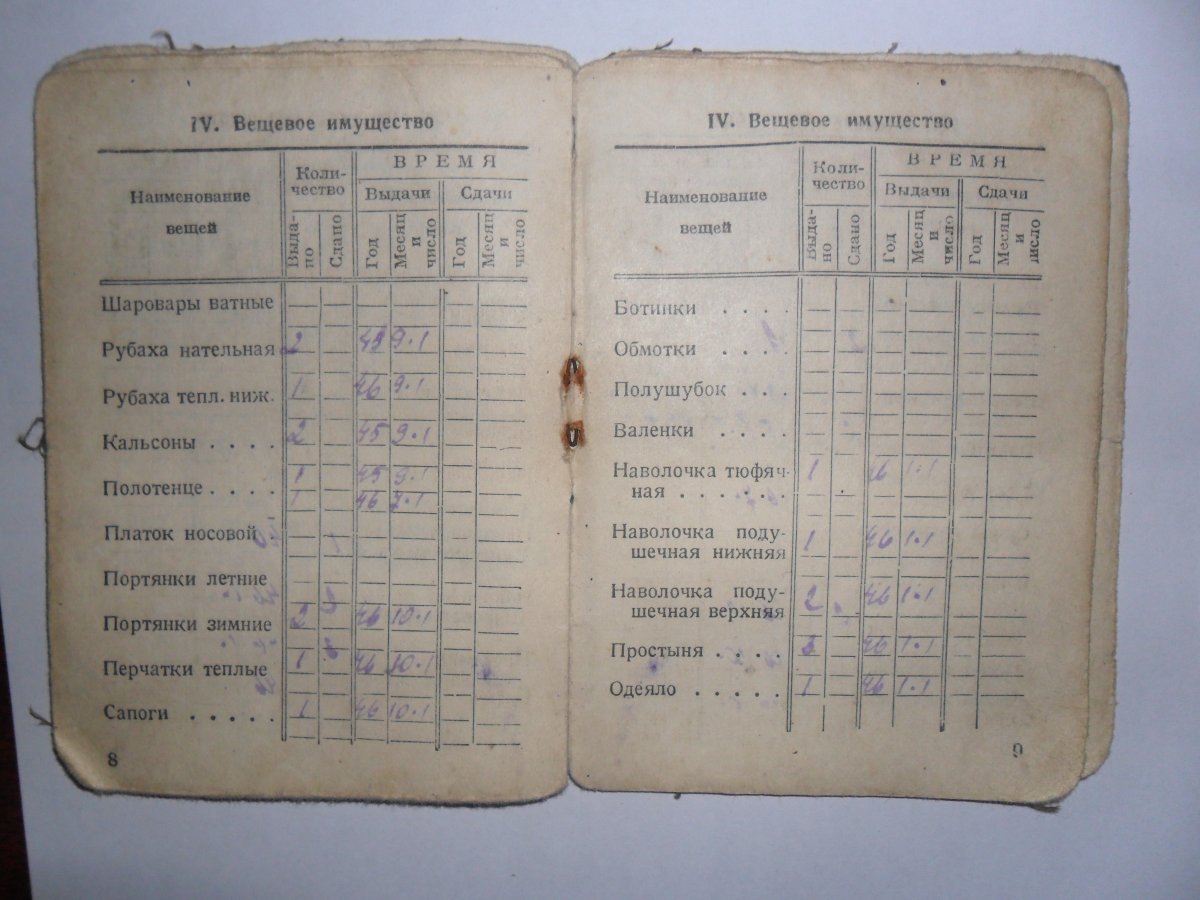 IV. Вещевое имущество
Наименование вещей
Коли-
чество
ВРЕМЯ
Выдачи
Сдачи
Выда-
но
Сдано
Год
Месяц и число
Год
Месяц и число
Шаровары ватные
Рубаха нательная 2 45 9.1
Рубаха тепл. ниж. 1 46 9.1
Кальсоны . . . . 2 45 9.1
1 45 9.1
Полотенце . . . . 1 46 7.1
Платок носовой .
Портянки летние
Портянки зимние 2 46 10.1
Перчатки теплые 1 46 10.1
Сапоги . . . . . 1 46 10.1
8
IV. Вещевое имущество
Наименование вещей
Коли-
чество
ВРЕМЯ
Выдачи
Сдачи
Выда-
но
Сдано
Год
Месяц и число
Год
Месяц и число
Ботинки . . . .
Обмотки . . . .
Полушубок . . .
Валенки . . . .
Наволочка тюфяч- 1 46 1.1
ная . . . . . .
Наволочка поду-
шечная нижняя 1 46 1.1
Наволочка поду-
шечная верхняя 2 46 1.1
Простыня . . . . 3 46 1.1
Одеяло . . . . . 1 46 1.1
9